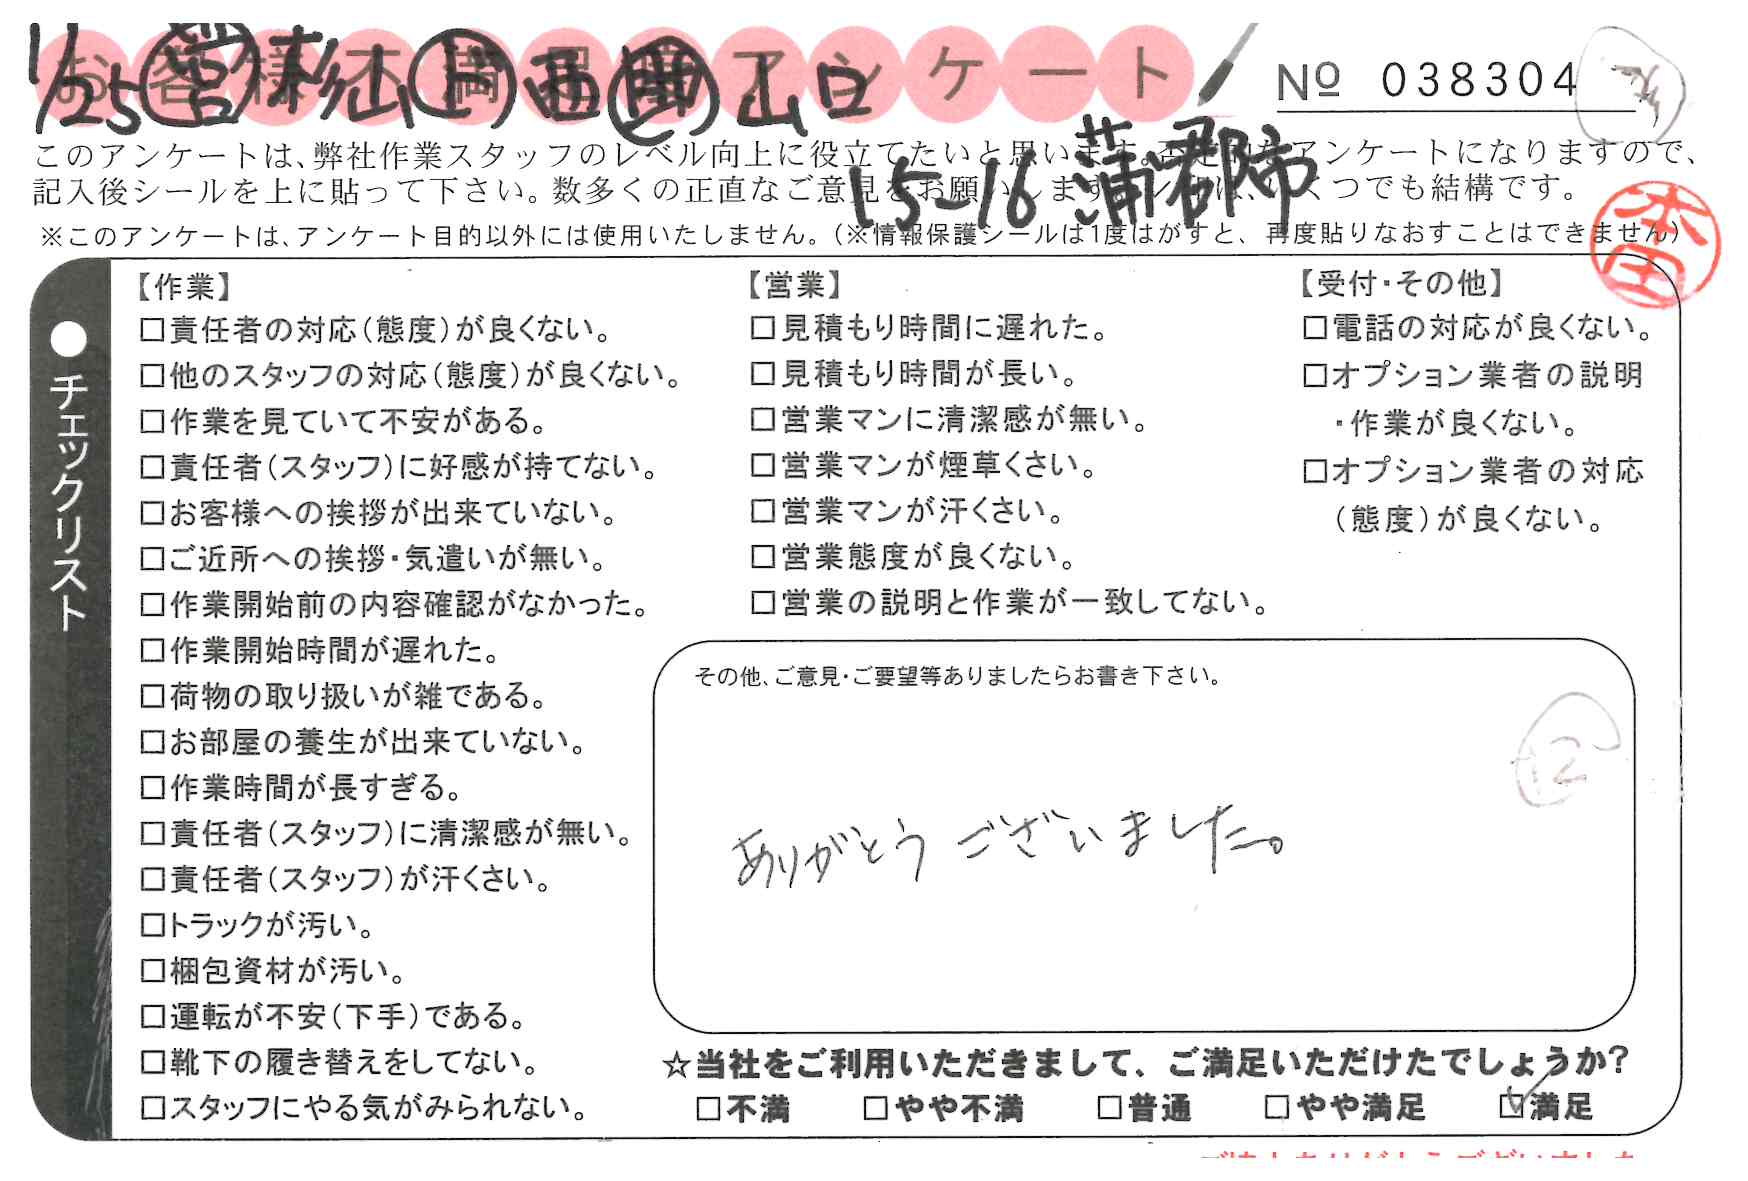 お客様不満足度アンケート
1/25 営 杉山 上 西 助 山口
№ 038304
15-16 蒲郡市
このアンケートは、弊社作業スタッフのレベル向上に役立てたいと思います。否定的なアンケートになりますので、
記入後シールを上に貼って下さい。数多くの正直なご意見をお願いします。
※このアンケートは、アンケート目的以外には使用いたしません。(※情報保護シールは1度はがすと、再度貼りなおすことはできません)
本田
●チェックリスト
【作業】
□責任者の対応(態度)が良くない。
□他のスタッフの対応(態度)が良くない。
□作業を見ていて不安がある。
□責任者(スタッフ)に好感が持てない。
□お客様への挨拶が出来ていない。
□ご近所への挨拶・気遣いが無い。
□作業開始前の内容確認がなかった。
□作業開始時間が遅れた。
□荷物の取り扱いが雑である。
□お部屋の養生が出来ていない。
□作業時間が長すぎる。
□責任者(スタッフ)に清潔感が無い。
□責任者(スタッフ)が汗くさい。
□トラックが汚い。
□梱包資材が汚い。
□運転が不安(下手)である。
□靴下の履き替えをしてない。
□スタッフにやる気がみられない。
【営業】
□見積もり時間に遅れた。
□見積もり時間が長い。
□営業マンに清潔感が無い。
□営業マンが煙草くさい。
□営業マンが汗くさい。
□営業態度が良くない。
□営業の説明と作業が一致してない。
【受付・その他】
□電話の対応が良くない。
□オプション業者の説明
・作業が良くない。
□オプション業者の対応
(態度)が良くない。
その他、ご意見・ご要望等ありましたらお書き下さい。
12
ありがとうございました。
☆当社をご利用いただきまして、ご満足いただけたでしょうか?
□不満 □やや不満 □普通 □やや満足 ☑満足